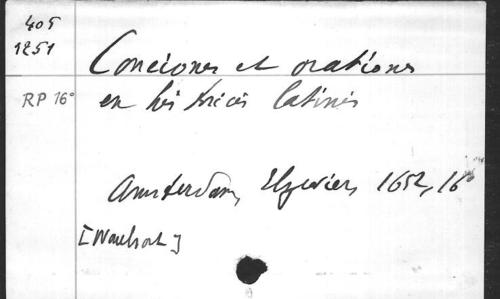 405
1251
Conciones et orationes
RP 16°
ex historicis latinis
Amsterdam, Elzevier, 1652, 16°